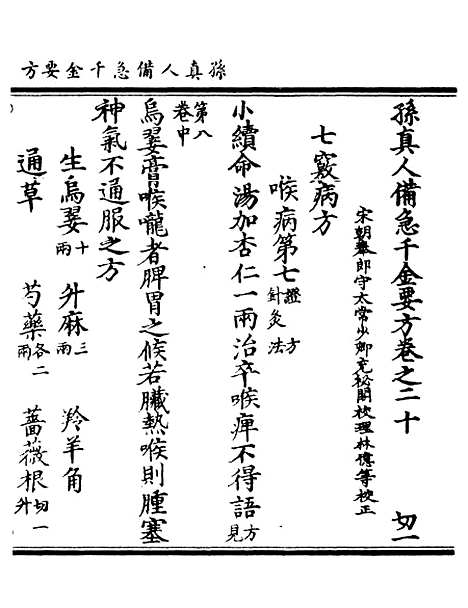 孫真人備急千金要方
孫真人備急千金要方卷之二十 切一
宋朝奉郎守太常少卿充秘閣校理林億等校正
七竅病方
喉病第七 證 方 針灸法
小續命湯加杏仁一兩治卒喉痺不得語 方見
第八卷中
烏翣膏喉嚨者脾胃之候若臟熱喉則腫塞
神氣不通服之方
生烏翣十兩 升麻三兩 羚羊角
通草 芍藥各二兩 薔薇根切一升